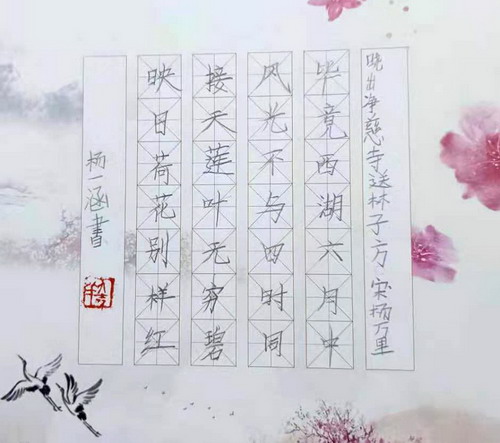 晓出净慈寺送林子方 宋杨万里
毕竟西湖六月中
风光不与四时同
接天莲叶无穷碧
映日荷花别样红
杨一涵書